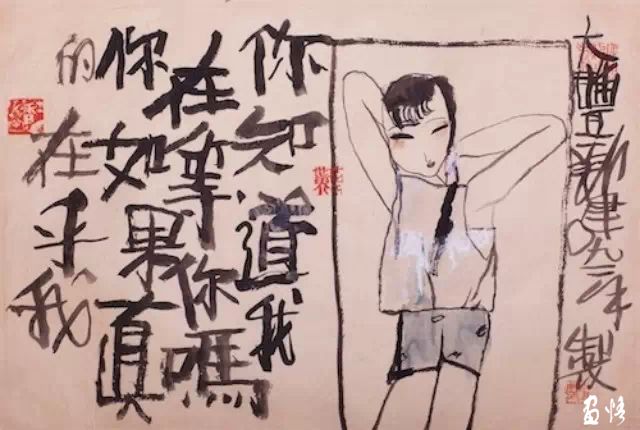 大豐新建九三年製
你知道我
在等你嗎
你如果真
的在乎我